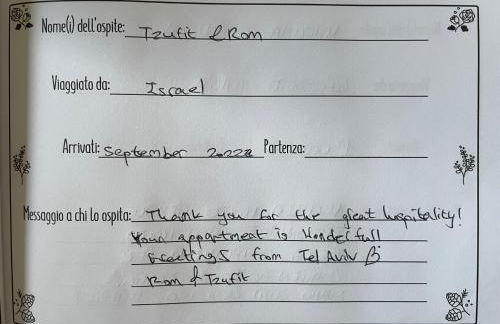 Nome(i) dell'ospite: Tzufit & Rom
Viaggiato da: Israel
Arrivati: September 2022 Partenza:
Messaggio a chi lo ospita: Thank you for the great hospitality!
Your appartment is Wonderfull
Greetings from Tel Aviv
Rom & Tzufit